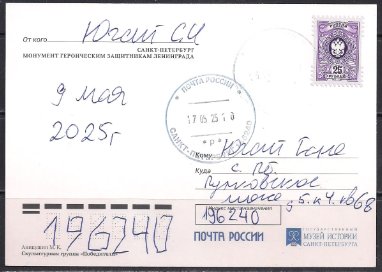 От кого Югай С.И
САНКТ-ПЕТЕРБУРГ
МОНУМЕНТ ГЕРОИЧЕСКИМ ЗАЩИТНИКАМ ЛЕНИНГРАДА
9 мая
2025г
РОССИЯ
25
ПОЧТА РОССИИ
17 05 25 1
Кому
Куда с. Пб.
Пулковское
шоссе д 5. к 4. кв 68
196240
196240
Аникушин М.К.
Скульптурная группа «Победители»
ПОЧТА РОССИИ
ГОСУДАРСТВЕННЫЙ
МУЗЕЙ ИСТОРИИ
САНКТ-ПЕТЕРБУРГА